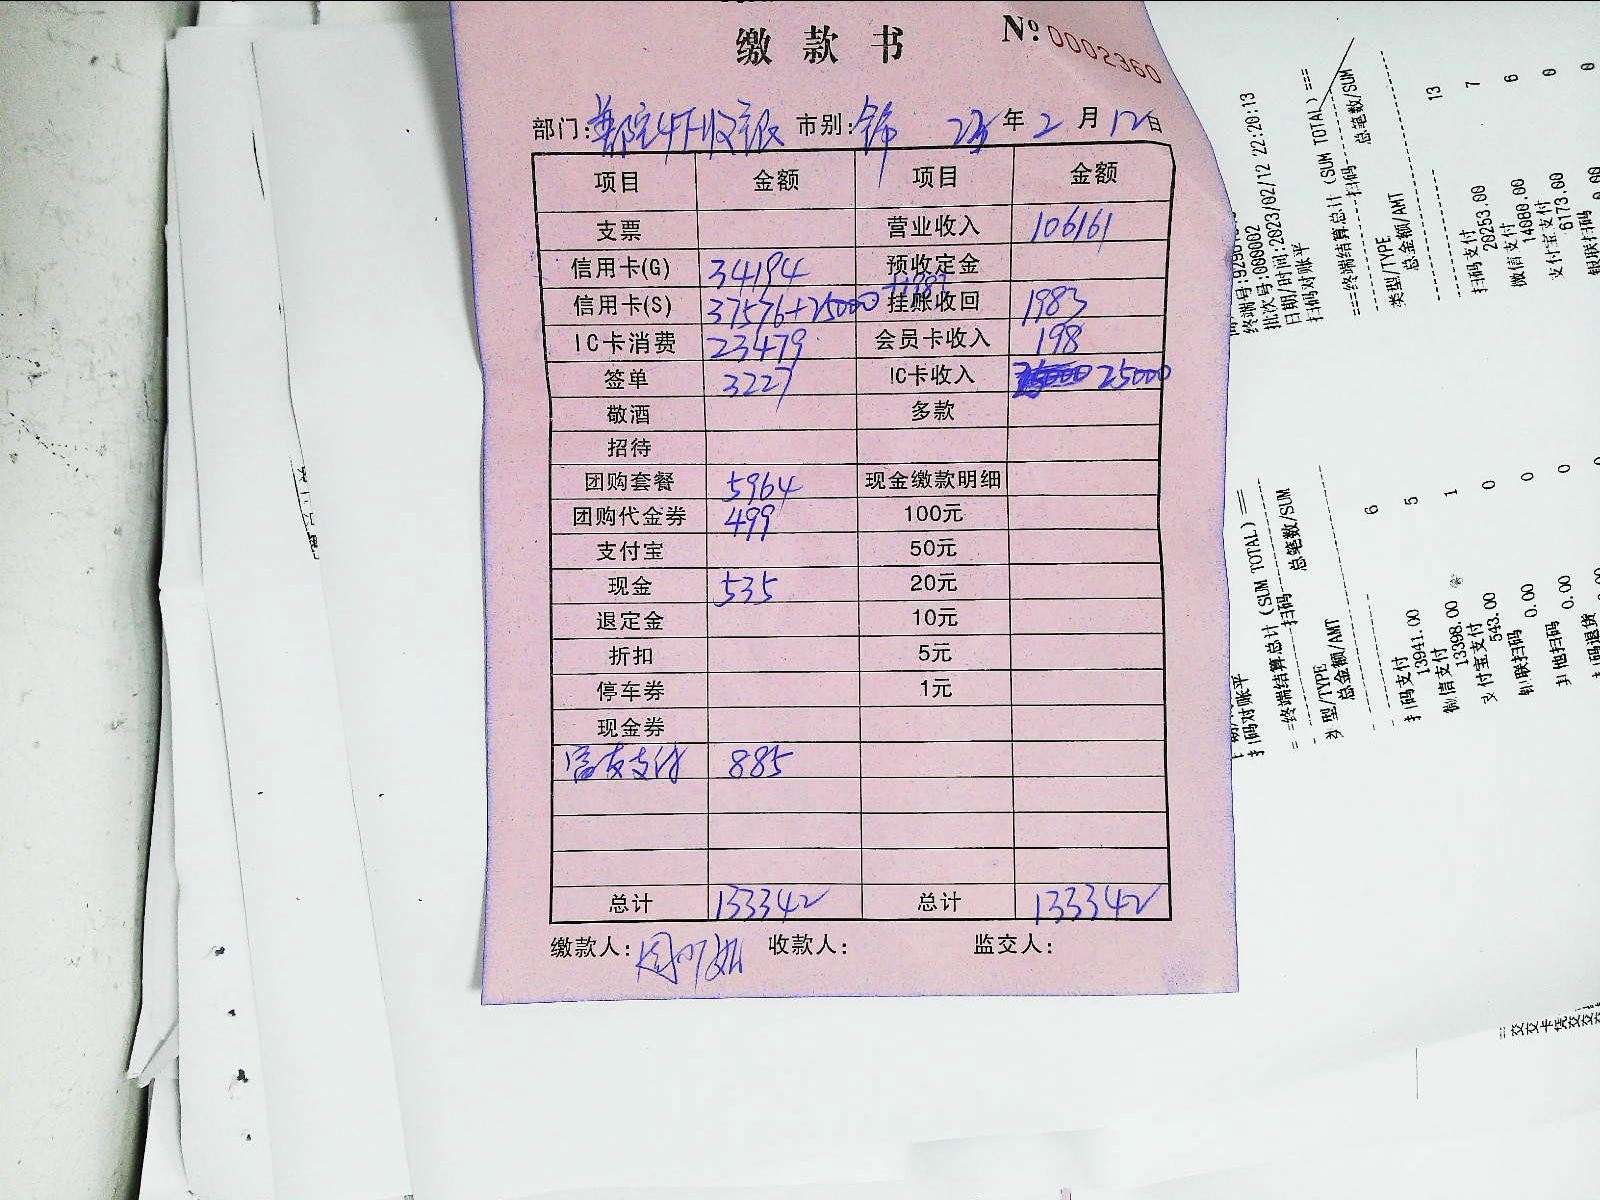 缴款书 Nº 0002360
部门: 4F收银 市别: 23年2月12日
项目 金额 项目 金额
支票 营业收入 106161
信用卡(G) 34194 预收定金
信用卡(S) 37576+25000+1983 挂账收回 1983
IC卡消费 23479 会员卡收入 198
签单 3227 IC卡收入 25000
敬酒 多款
招待
团购套餐 5964 现金缴款明细
团购代金券 499 100元
支付宝 50元
现金 535 20元
退定金 10元
折扣 5元
停车券 1元
现金券
支付 885
总计 133342 总计 133342
缴款人: 收款人: 监交人:
批次号:000002
日期/时间:2023/02/12 22:20:13
扫码对账平
===终端结算总计(SUM TOTAL)===
扫码
类型/TYPE 总笔数/SUM
总金额/AMT
13
扫码支付 7
20253.00
微信支付 6
14080.00
支付宝支付 0
6173.00
银联扫码 0
0.00
扫码对账平
==终端结算总计(SUM TOTAL)==
扫码
类型/TYPE 总笔数/SUM
总金额/AMT
6
扫码支付 5
13941.00
微信支付 1
13398.00
支付宝支付 0
543.00
银联扫码 0
0.00
其他扫码 0
0.00
扫码退货 0